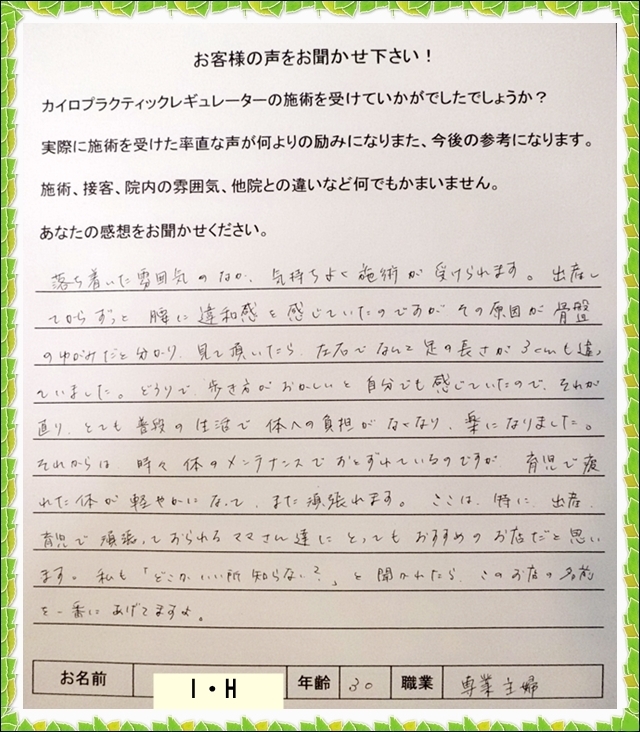 お客様の声をお聞かせ下さい！
カイロプラクティックレギュレーターの施術を受けていかがでしたでしょうか？
実際に施術を受けた率直な声が何よりの励みになりまた、今後の参考になります。
施術、接客、院内の雰囲気、他院との違いなど何でもかまいません。
あなたの感想をお聞かせください。
落ち着いた雰囲気のなか、気持ちよく施術が受けられます。出産し
てからずっと腰に違和感を感じていたのですがその原因が骨盤
のゆがみだと分かり、見て頂いたら、左右でなんと足の長さが3cmも違っ
ていました。どうりで、歩き方がおかしいと自分でも感じていたので、それが
直り、とても普段の生活で体への負担がなくなり、楽になりました。
それからは、時々体のメンテナンスでおとずれているのですが、育児で疲
れた体が軽やかになって、また頑張れます。ここは、特に、出産、
育児で頑張っておられるママさん達にとってもおすすめのお店だと思い
ます。私も「どこかいい所知らない？」と聞かれたら、このお店の名前
を一番にあげてますよ。
お名前 I・H 年齢 30 職業 専業主婦